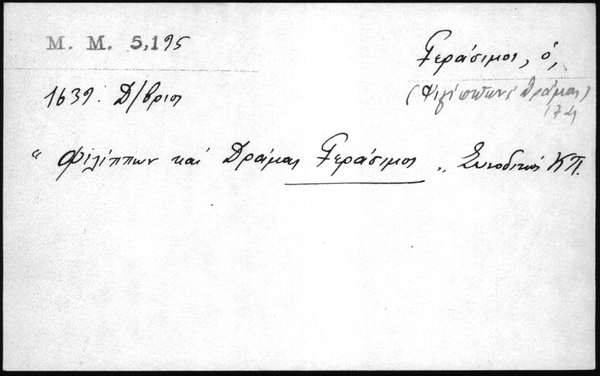 M. M. 5,195
Γεράσιμος, ὁ,
(Φιλίππων, Δράμας)
174
1639. Δ/βριος
“ Φιλίππων καὶ Δράμας Γεράσιμος „ Συνοδικός ΚΠ.